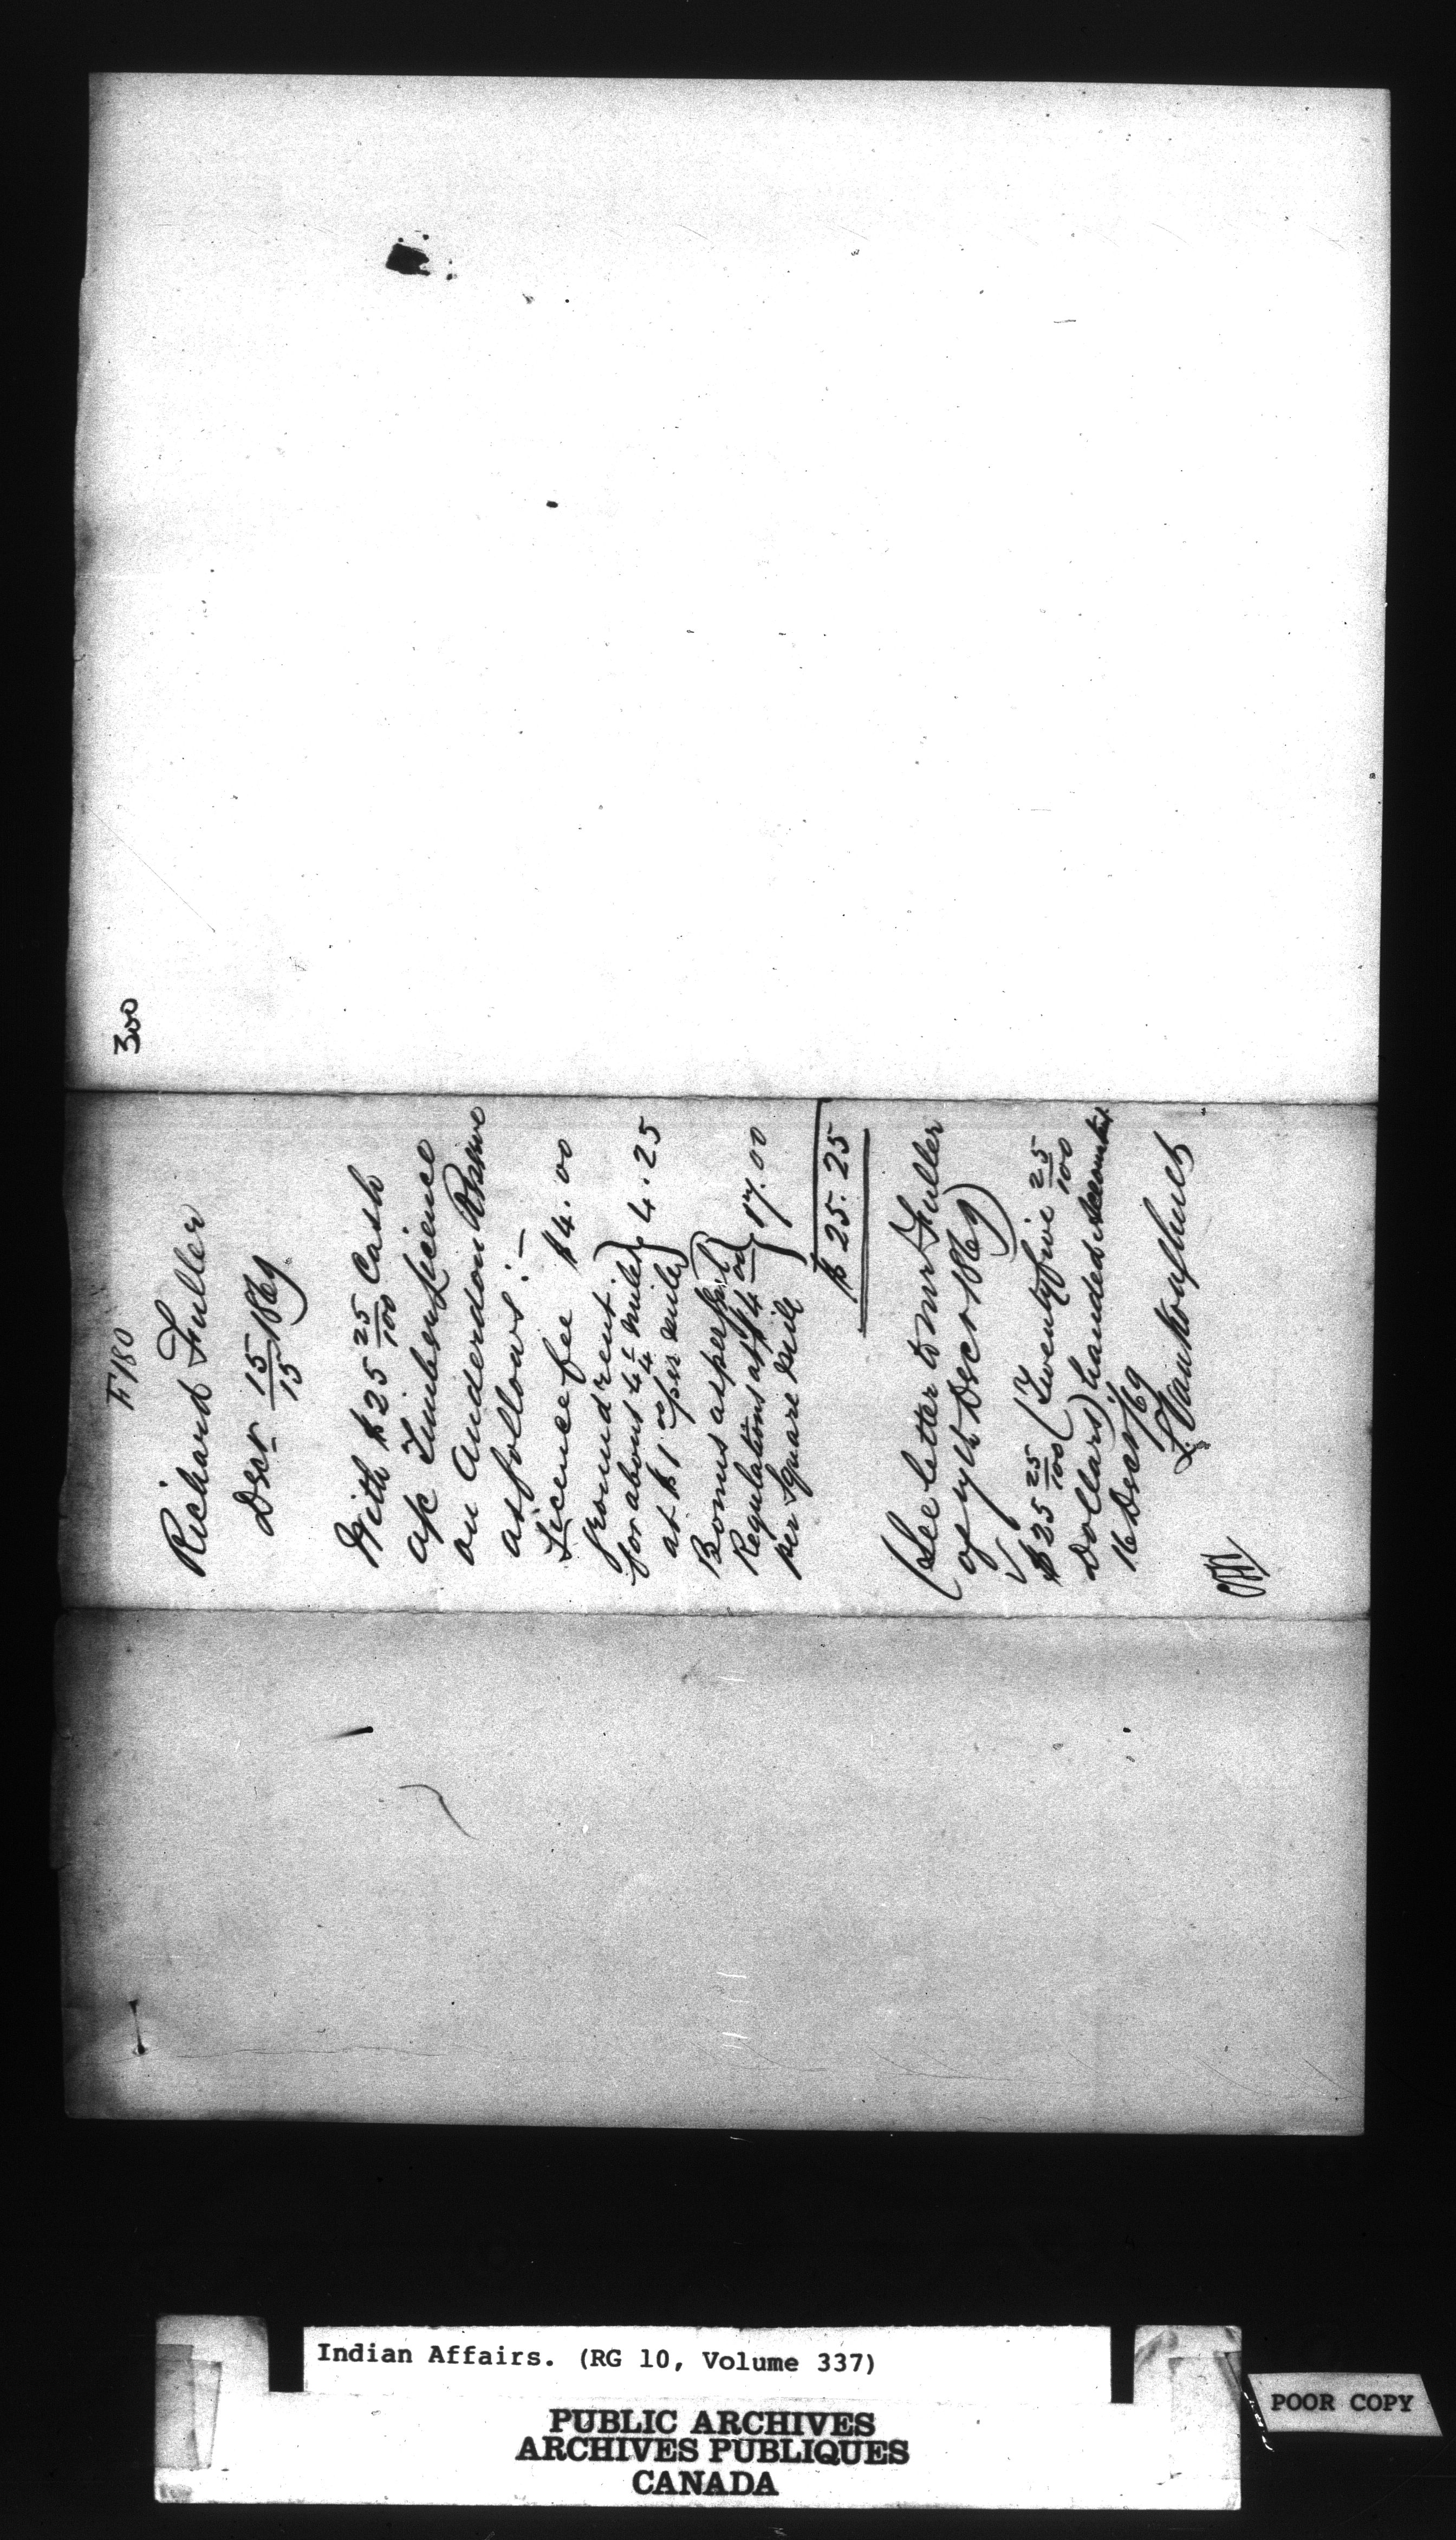 300
F180
Richard Fuller
Decr 15/15 1869
With $25 25/100 Cash
a/c Timber Licence
on Anderdon Reserve
as follows :—
Licence fee $4.00
ground rent
for about 4 1/4 miles
at $1 00/ per mile } 4.25
Bonus as per
Regulations at $4 00/
per square mile } 17.00
$25.25
(See letter to Mr R Fuller
of 7th Decr 1869)
$25 25/100 (Twenty five 25/100
Dollars) handed accountant
16 Decr /69
Indian Affairs. (RG 10, Volume 337)
PUBLIC ARCHIVES
ARCHIVES PUBLIQUES
CANADA
POOR COPY